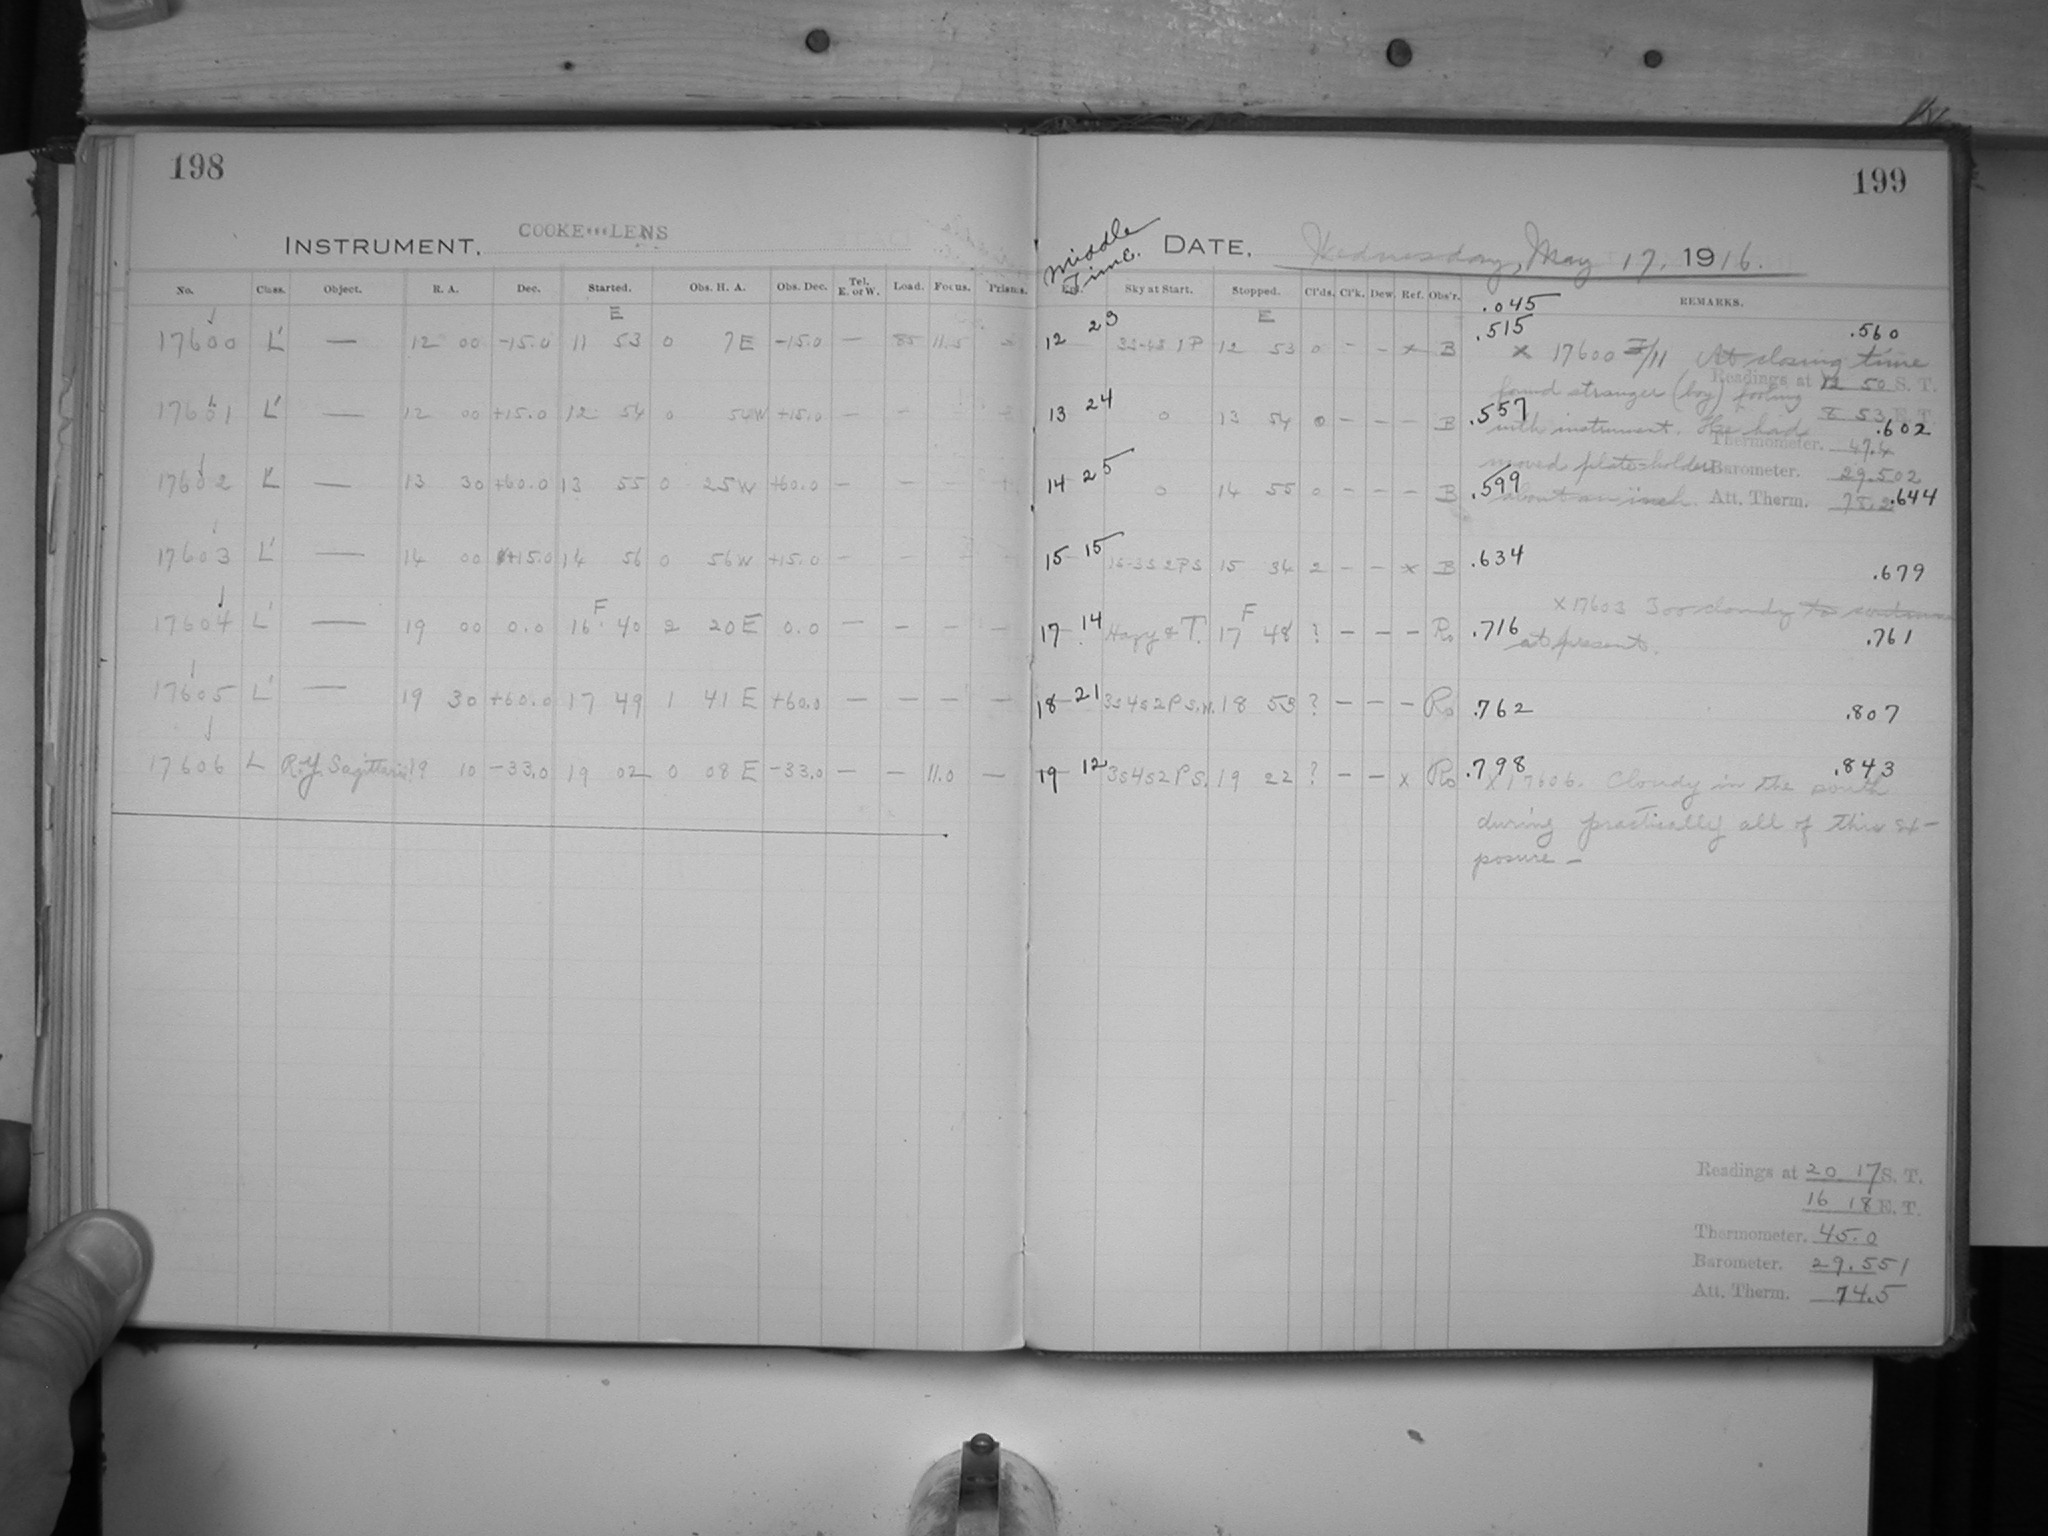 198
199
INSTRUMENT, COOKE LENS
Middle Time.
DATE, Wednesday, May 17, 1916.
No. Class. Object. R. A. Dec. Started. Obs. H. A. Obs. Dec. Tel. E. or W. Load. Focus. Prisms. Sky at Start. Stopped. Cl'ds. Cl'k. Dew. Ref. Obs'r. REMARKS.
E E .045
17600 L' — 12 00 -15.0 11 53 0 7 E -15.0 — 85 11.5 12 23 12 53 0 - - x B .515 .560
x 17600 At closing time
Readings at 12 50 S. T.
found stranger (boy) fooling
17601 L' — 12 00 +15.0 12 54 0 54W +15.0 — — 13 24 0 13 54 0 — — — B .557 .602
8 53 E. T.
with instrument. He had
Thermometer. 47.4
moved plateholder
Barometer. 29.502
17602 L' — 13 30 +60.0 13 55 0 25W +60.0 — — 14 25 0 14 55 0 — — — B .599 .644
about an inch.
Att. Therm. 78.2
17603 L' — 14 00 +15.0 14 56 0 56W +15.0 — — 15 15 15 34 2 — — x B .634 .679
x 17603 Too cloudy to continue
F F
17604 L' — 19 00 0.0 16 40 2 20 E 0.0 — — — — 17 14 Hazy & T. 17 48 ? — — — Ro .716 .761
at present.
17605 L' — 19 30 +60.0 17 49 1 41 E +60.0 — — — — 18 21 3s4s2P S.W. 18 53 ? — — — Ro .762 .807
17606 L R.Y. Sagittarii 19 10 -33.0 19 02 0 08 E -33.0 — — 11.0 — 19 12 3s4s2P S. 19 22 ? — — x Ro .798 .843
x 17606. Cloudy in the south
during practically all of this ex-
posure —
Readings at 20 17 S. T.
16 18 E. T.
Thermometer. 45.0
Barometer. 29.551
Att. Therm. 74.5